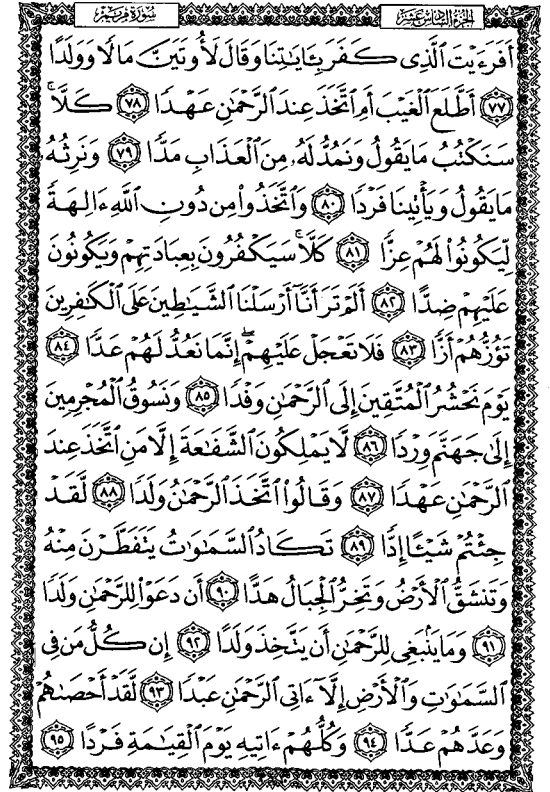 سُورَةُ مَرْيَمَ
الجزء السادس عشر
أَفَرَءَيْتَ ٱلَّذِى كَفَرَ بِـَٔايَـٰتِنَا وَقَالَ لَأُوتَيَنَّ مَالًا وَوَلَدًا
٧٧ أَطَّلَعَ ٱلْغَيْبَ أَمِ ٱتَّخَذَ عِندَ ٱلرَّحْمَـٰنِ عَهْدًا ٧٨ كَلَّا ۚ
سَنَكْتُبُ مَا يَقُولُ وَنَمُدُّ لَهُۥ مِنَ ٱلْعَذَابِ مَدًّا ٧٩ وَنَرِثُهُۥ
مَا يَقُولُ وَيَأْتِينَا فَرْدًا ٨٠ وَٱتَّخَذُوا۟ مِن دُونِ ٱللَّهِ ءَالِهَةً
لِّيَكُونُوا۟ لَهُمْ عِزًّا ٨١ كَلَّا ۚ سَيَكْفُرُونَ بِعِبَادَتِهِمْ وَيَكُونُونَ
عَلَيْهِمْ ضِدًّا ٨٢ أَلَمْ تَرَ أَنَّآ أَرْسَلْنَا ٱلشَّيَـٰطِينَ عَلَى ٱلْكَـٰفِرِينَ
تَؤُزُّهُمْ أَزًّا ٨٣ فَلَا تَعْجَلْ عَلَيْهِمْ ۖ إِنَّمَا نَعُدُّ لَهُمْ عَدًّا ٨٤
يَوْمَ نَحْشُرُ ٱلْمُتَّقِينَ إِلَى ٱلرَّحْمَـٰنِ وَفْدًا ٨٥ وَنَسُوقُ ٱلْمُجْرِمِينَ
إِلَىٰ جَهَنَّمَ وِرْدًا ٨٦ لَّا يَمْلِكُونَ ٱلشَّفَـٰعَةَ إِلَّا مَنِ ٱتَّخَذَ عِندَ
ٱلرَّحْمَـٰنِ عَهْدًا ٨٧ وَقَالُوا۟ ٱتَّخَذَ ٱلرَّحْمَـٰنُ وَلَدًا ٨٨ لَّقَدْ
جِئْتُمْ شَيْـًٔا إِدًّا ٨٩ تَكَادُ ٱلسَّمَـٰوَٰتُ يَتَفَطَّرْنَ مِنْهُ
وَتَنشَقُّ ٱلْأَرْضُ وَتَخِرُّ ٱلْجِبَالُ هَدًّا ٩٠ أَن دَعَوْا۟ لِلرَّحْمَـٰنِ وَلَدًا
٩١ وَمَا يَنۢبَغِى لِلرَّحْمَـٰنِ أَن يَتَّخِذَ وَلَدًا ٩٢ إِن كُلُّ مَن فِى
ٱلسَّمَـٰوَٰتِ وَٱلْأَرْضِ إِلَّآ ءَاتِى ٱلرَّحْمَـٰنِ عَبْدًا ٩٣ لَّقَدْ أَحْصَىٰهُمْ
وَعَدَّهُمْ عَدًّا ٩٤ وَكُلُّهُمْ ءَاتِيهِ يَوْمَ ٱلْقِيَـٰمَةِ فَرْدًا ٩٥